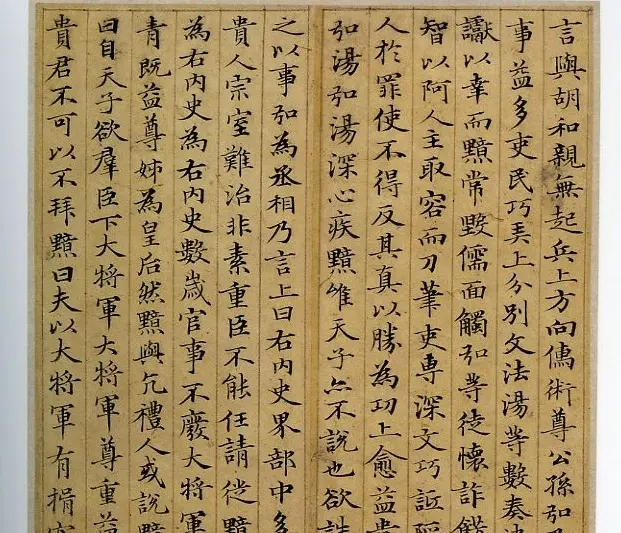 言與胡和親無起兵上方向儒術尊公孫弘
事益多吏民巧弄上分別文法湯等數奏決
讞以幸而黯常毀儒面觸弘等徒懷詐飾
智以阿人主取容而刀筆吏專深文巧詆陷
人於罪使不得反其真以勝為功上愈益貴
弘湯弘湯深心疾黯雖天子亦不說也欲誅
之以事弘為丞相乃言上曰右內史界部中多
貴人宗室難治非素重臣不能任請徙黯
為右內史為右內史數歲官事不廢大將軍
青既益尊姊為皇后然黯與亢禮人或說黯
曰自天子欲羣臣下大將軍大將軍尊重益
貴君不可以不拜黯曰夫以大將軍有揖客